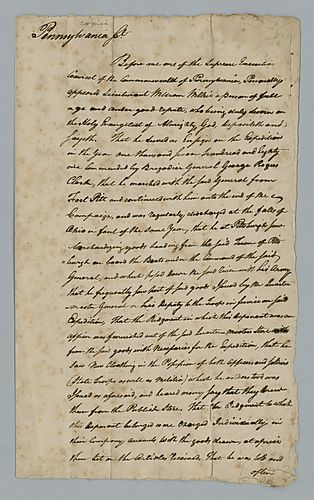 copied
Pennsylvania Ss.
Before me one of the Supreme Executive
Council of the Commonwealth of Pennsylvania, Personally
appeared Lieutenant William a Person of full
age and under good repute, who being duly sworn on
the Holy Evangelist of Almighty God, deposeth and
sayeth, That he served as Ensign on the Expedition
in the Year one thousand seven hundred and Eighty
one Commanded by Brigadier General George Rogers
Clark, that he marched with the said General from
Fort Pitt and continued with him until the end of the
Campaign, and was regularly discharged at the falls of
Ohio in of the Same Year, that he at Pittsburgh saw
Merchandizing goods from the said Town of Pitts
burgh on board the Boats under the Command of the said
General, and which passed down the said River with his Army
that he frequently saw part of said goods Issued by the Quarter
Master General or his Deputy to the Troops in Service on said
Expedition, That the Regiment in which this deponent was an
officer was furnished out of the said Quarter Masters Store with
from the said goods with Necessaries for the Expedition, that he
saw New Cloathing in the Possession of both Officers and Soldiers
(State Troops as well as Militia) which he understood was
Issued as aforesaid, and heard many say that they drew
them from the Publick Store, that the Regiment to which
this deponent belonged were Charged Individually, in
their Company Accounts with the goods drawn, at prices
then Set on the Articles Received That he was told and
often